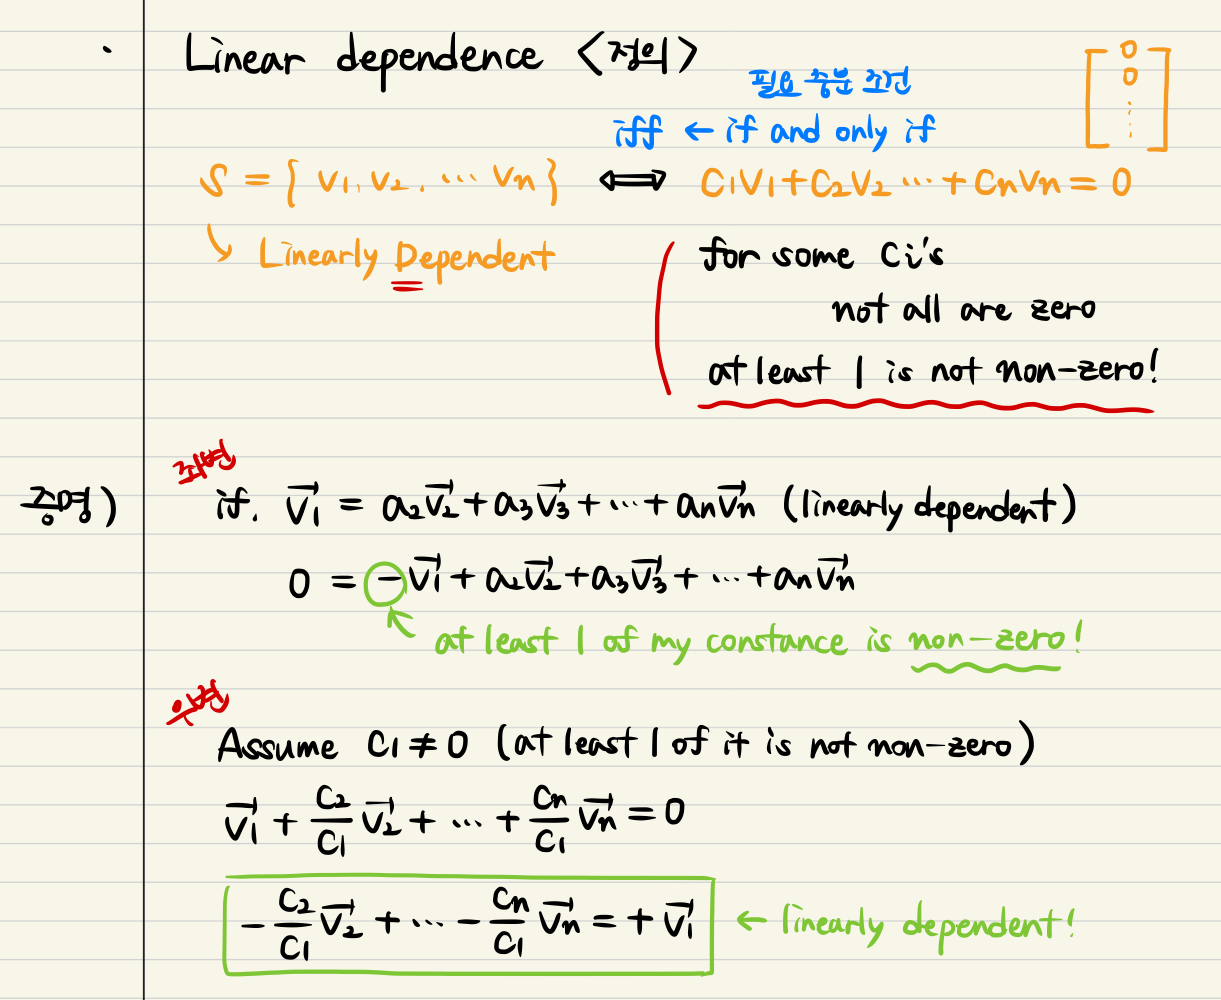 · Linear dependence <정의>
필요 충분 조건
iff ← if and only if
[0 0 ⋮]
S = { v1, v2, ... vn } ⟺ C1V1 + C2V2 ... + CnVn = 0
↳ Linearly Dependent
for some Ci's
not all are zero
at least 1 is not non-zero!
좌변
증명) if. v⃗1 = a2v⃗2 + a3v⃗3 + ... + anv⃗n (linearly dependent)
0 = -v⃗1 + a2v⃗2 + a3v⃗3 + ... + anv⃗n
at least 1 of my constance is non-zero!
우변
Assume C1 ≠ 0 (at least 1 of it is not non-zero)
v⃗1 + C2/C1 v⃗2 + ... + Cn/C1 v⃗n = 0
- C2/C1 v⃗2 + ... - Cn/C1 v⃗n = + v⃗1 ← linearly dependent!